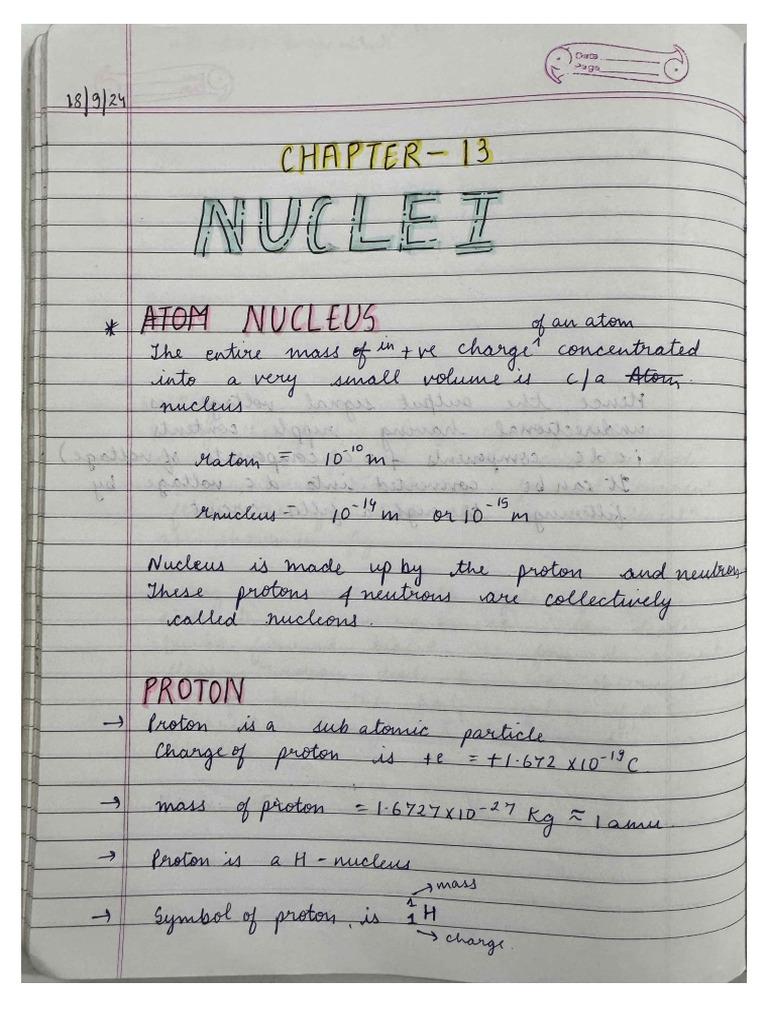 Date
Page
18/9/24
CHAPTER - 13
NUCLEI
* ATOM NUCLEUS
of an atom
The entire mass of in +ve charge concentrated
into a very small volume is c/a Atom.
nucleus
ratom = 10⁻¹⁰m
rnucleus = 10⁻¹⁴m or 10⁻¹⁵m
Nucleus is made up by the proton and neutron
These protons & neutrons are collectively
called nucleons.
PROTON
→ Proton is a sub atomic particle
Charge of proton is +e = +1.672 x10⁻¹⁹C
→ mass of proton = 1.6727x10⁻²⁷ Kg ≈ 1 amu.
→ Proton is a H - nucleus
→ mass
→ Symbol of proton is ¹₁H
→ charge.